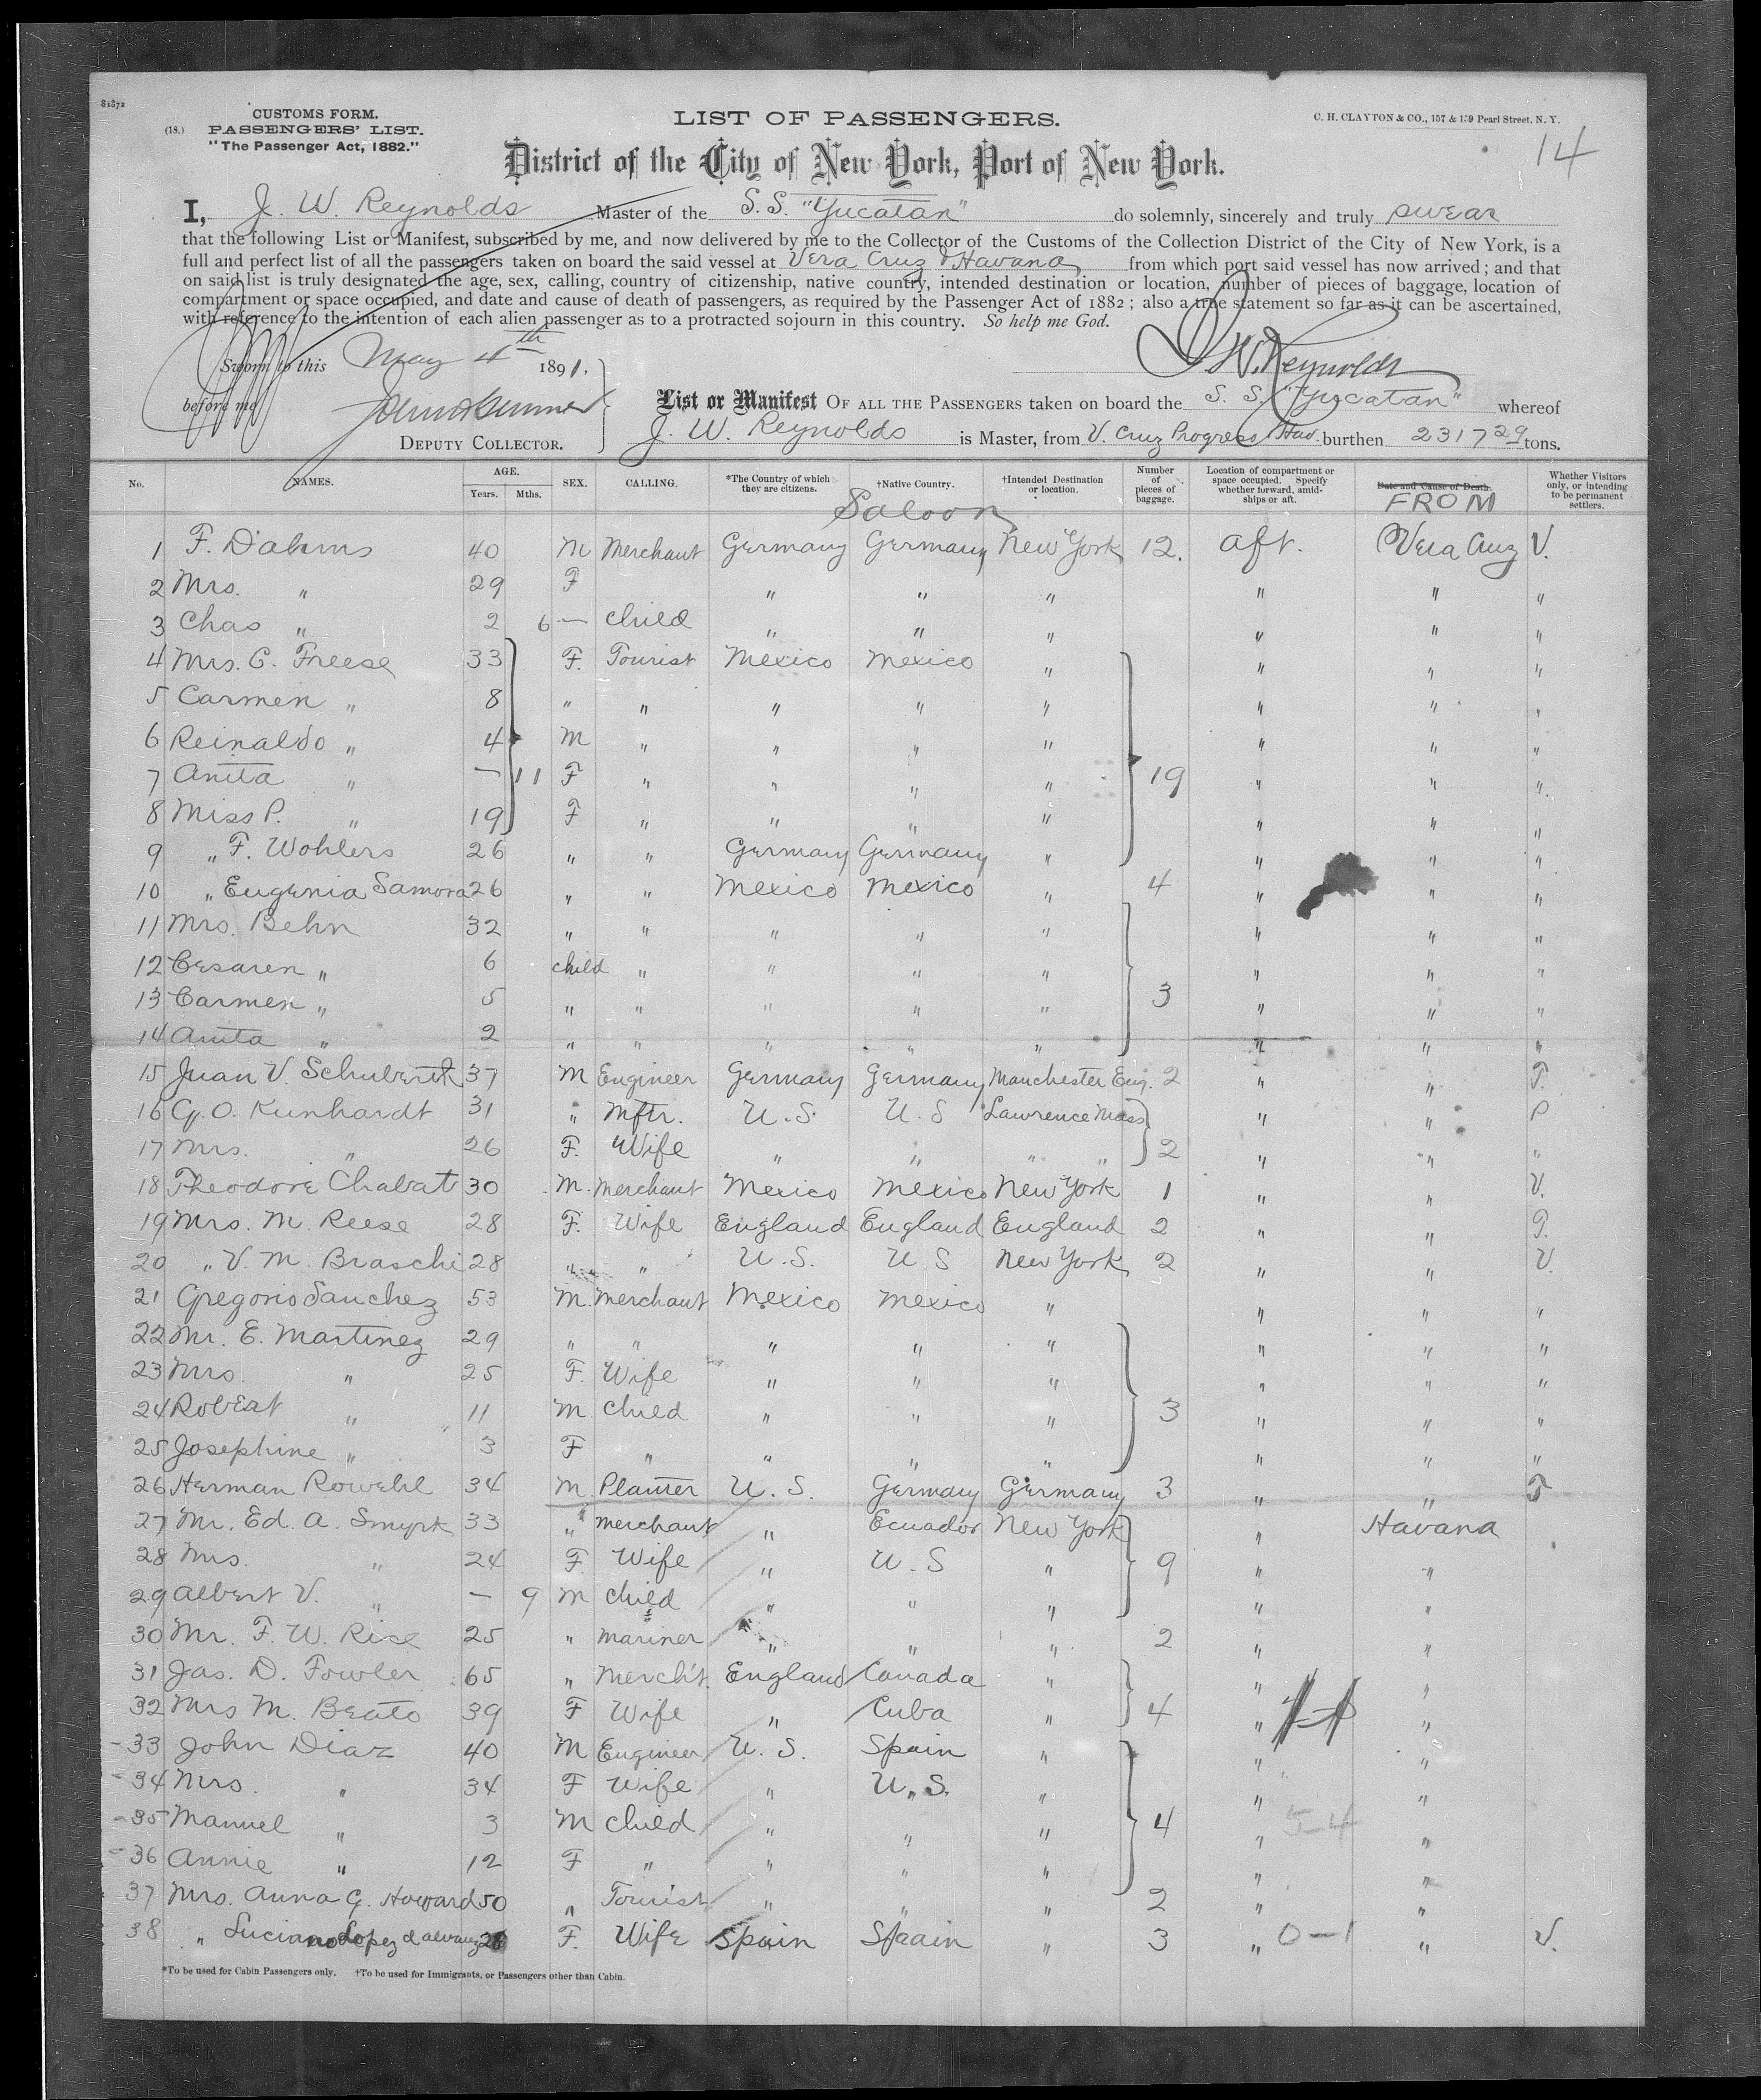 81372
CUSTOMS FORM.
(18.) PASSENGERS' LIST.
"The Passenger Act, 1882."
LIST OF PASSENGERS.
C. H. CLAYTON & CO., 157 & 159 Pearl Street, N. Y.
14
District of the City of New York, Port of New York.
I, J. W. Reynolds Master of the S.S. "Yucatan" do solemnly, sincerely and truly swear
that the following List or Manifest, subscribed by me, and now delivered by me to the Collector of the Customs of the Collection District of the City of New York, is a
full and perfect list of all the passengers taken on board the said vessel at Vera Cruz & Havana from which port said vessel has now arrived; and that
on said list is truly designated the age, sex, calling, country of citizenship, native country, intended destination or location, number of pieces of baggage, location of
compartment or space occupied, and date and cause of death of passengers, as required by the Passenger Act of 1882; also a true statement so far as it can be ascertained,
with reference to the intention of each alien passenger as to a protracted sojourn in this country. So help me God.
Sworn to this May 4th 1891.
J W. Reynolds
before me
DEPUTY COLLECTOR.
List or Manifest OF ALL THE PASSENGERS taken on board the S. S. "Yucatan" whereof
J. W. Reynolds is Master, from V. Cruz Progreso Hav. burthen 2317 29 tons.
No. NAMES. AGE. Years. Mths. SEX. CALLING. *The Country of which they are citizens. †Native Country. †Intended Destination or location. Number of pieces of baggage. Location of compartment or space occupied. Specify whether forward, amidships or aft. Date and Cause of Death. FROM Whether Visitors only, or intending to be permanent settlers.
Saloon
1 F. Dahms 40 M Merchant Germany Germany New York 12. aft. Vera Cruz V.
2 Mrs. " 29 F " " " " " "
3 Chas " 2 6 — child " " " " " "
4 Mrs. C. Freese 33 F. Tourist Mexico Mexico " " " "
5 Carmen " 8 " " " " " " " "
6 Reinaldo " 4 M " " " " " " "
7 Anita " — 11 F " " " " 19 " " "
8 Miss P. " 19 F " " " " " " "
9 " F. Wohlers 26 " " Germany Germany " " " "
10 " Eugenia Samora 26 " " Mexico Mexico " 4 " " "
11 Mrs. Behn 32 " " " " " " " "
12 Cesaren " 6 child " " " " " " "
13 Carmen " 5 " " " " " 3 " " "
14 Anita " 2 " " " " " " " "
15 Juan V. Schuberth 37 M Engineer Germany Germany Manchester Eng. 2 " " T.
16 G. O. Kunhardt 31 " Mftr. U. S. U. S Lawrence Mass " " P
17 Mrs. " 26 F. Wife " " " " 2 " " "
18 Theodore Chabat 30 M. Merchant Mexico Mexico New York 1 " " V.
19 Mrs. M. Reese 28 F. Wife England England England 2 " " T.
20 " V. M. Braschi 28 " " U. S. U S New York 2 " " V.
21 Gregorio Sanchez 53 M. Merchant Mexico Mexico " " " "
22 Mr. E. Martinez 29 " " " " " " " "
23 Mrs. " 25 F. Wife " " " " " "
24 Robert " 11 M child " " " 3 " " "
25 Josephine " 3 F " " " " " " "
26 Herman Rowehl 34 M. Planter U. S. Germany Germany 3 " " T
27 Mr. Ed. A. Smyrk 33 " merchant " Ecuador New York " Havana
28 Mrs. " 24 F Wife " U. S " 9 " "
29 Albert V. " — 9 M child " " " " "
30 Mr. F. W. Rice 25 " mariner " " " 2 " "
31 Jas. D. Fowler 65 " Mercht. England Canada " " "
32 Mrs M. Beato 39 F Wife " Cuba " 4 " "
33 John Diaz 40 M Engineer U. S. Spain " " "
34 Mrs. " 34 F Wife " U. S. " " "
35 Manuel " 3 M child " " " 4 " "
36 Annie " 12 F " " " " " "
37 Mrs. Anna G. Howard 50 " Tourist " " " 2 " "
38 " Luciano Lopez d F. Wife Spain Spain " 3 " 0—1 " V.
*To be used for Cabin Passengers only. †To be used for Immigrants, or Passengers other than Cabin.